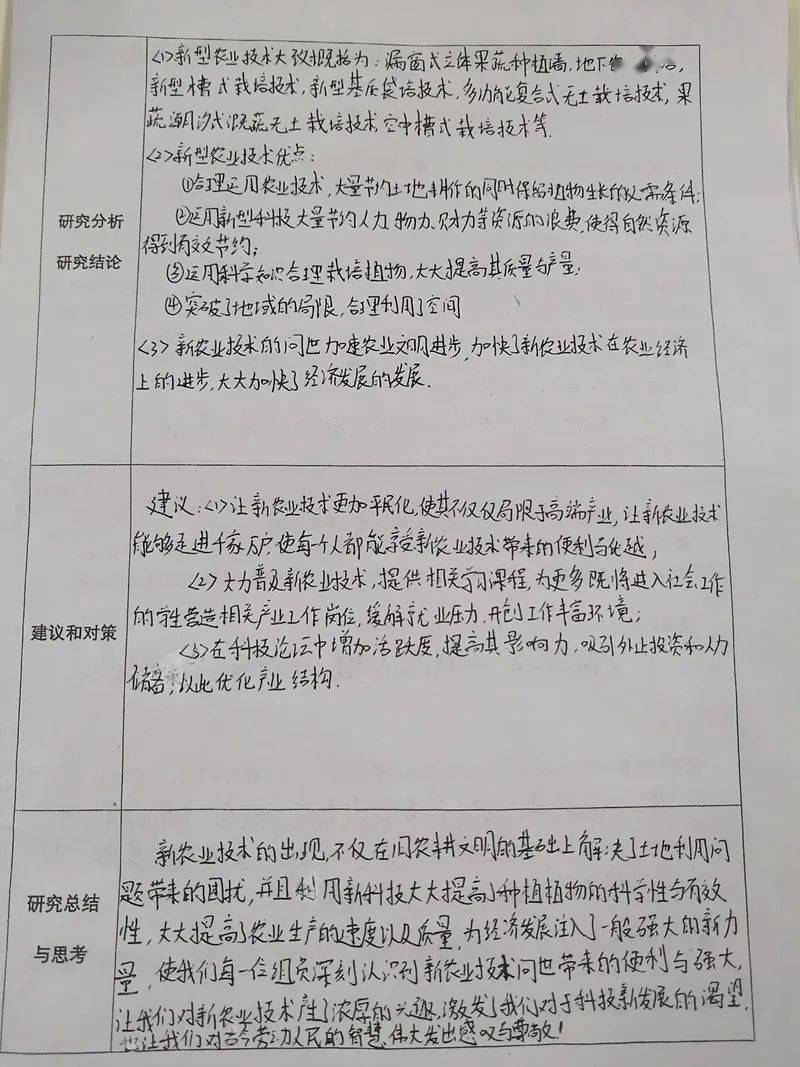 研究分析
研究结论
<1>新型农业技术大致概括为：漏窗式立体果蔬种植墙，地下
新型槽式栽培技术，新型基质袋培技术，多功能复合式无土栽培技术，果
蔬潮汐式溉蔬无土栽培技术，空中槽式栽培技术等．
<2>新型农业技术优点：
①合理运用农业技术，大量节约土地耕作的同时保留植物生长的必需条件；
②运用新型科技大量节约人力、物力、财力等资源的浪费，使得自然资源
得到有效节约；
③运用科学知识合理栽培植物，大大提高其质量与产量；
④突破了地域的局限，合理利用了空间
<3>新农业技术的问世加速农业文明进步，加快了新农业技术在农业经济
上的进步，大大加快了经济发展的发展．
建议和对策
建议：<1>让新农业技术更加平民化，使其不仅仅局限于高端产业，让新农业技术
能够走进千家万户，使每个人都能享受新农业技术带来的便利与优越；
<2>大力普及新农业技术，提供相关学习课程，为更多既将进入社会工作
的学生营造相关产业工作岗位，缓解就业压力，开创工作丰富环境；
<3>在科技论坛中增加活跃度，提高其影响力，吸引外止投资和人力
储备；以此优化产业结构．
研究总结
与思考
新农业技术的出现，不仅在旧农耕文明的基础上解决了土地利用问
题带来的困扰，并且利用新科技大大提高了种植植物的科学性与有效
性，大大提高了农业生产的速度以及质量，为经济发展注入了一般强大的新力
量，使我们每一位组员深刻认识到新农业技术问世带来的便利与强大，
让我们对新农业技术产生了浓厚的兴趣，激发了我们对于科技新发展的渴望，
也让我们对古今劳动人民的智慧、伟大发出感叹与尊敬！